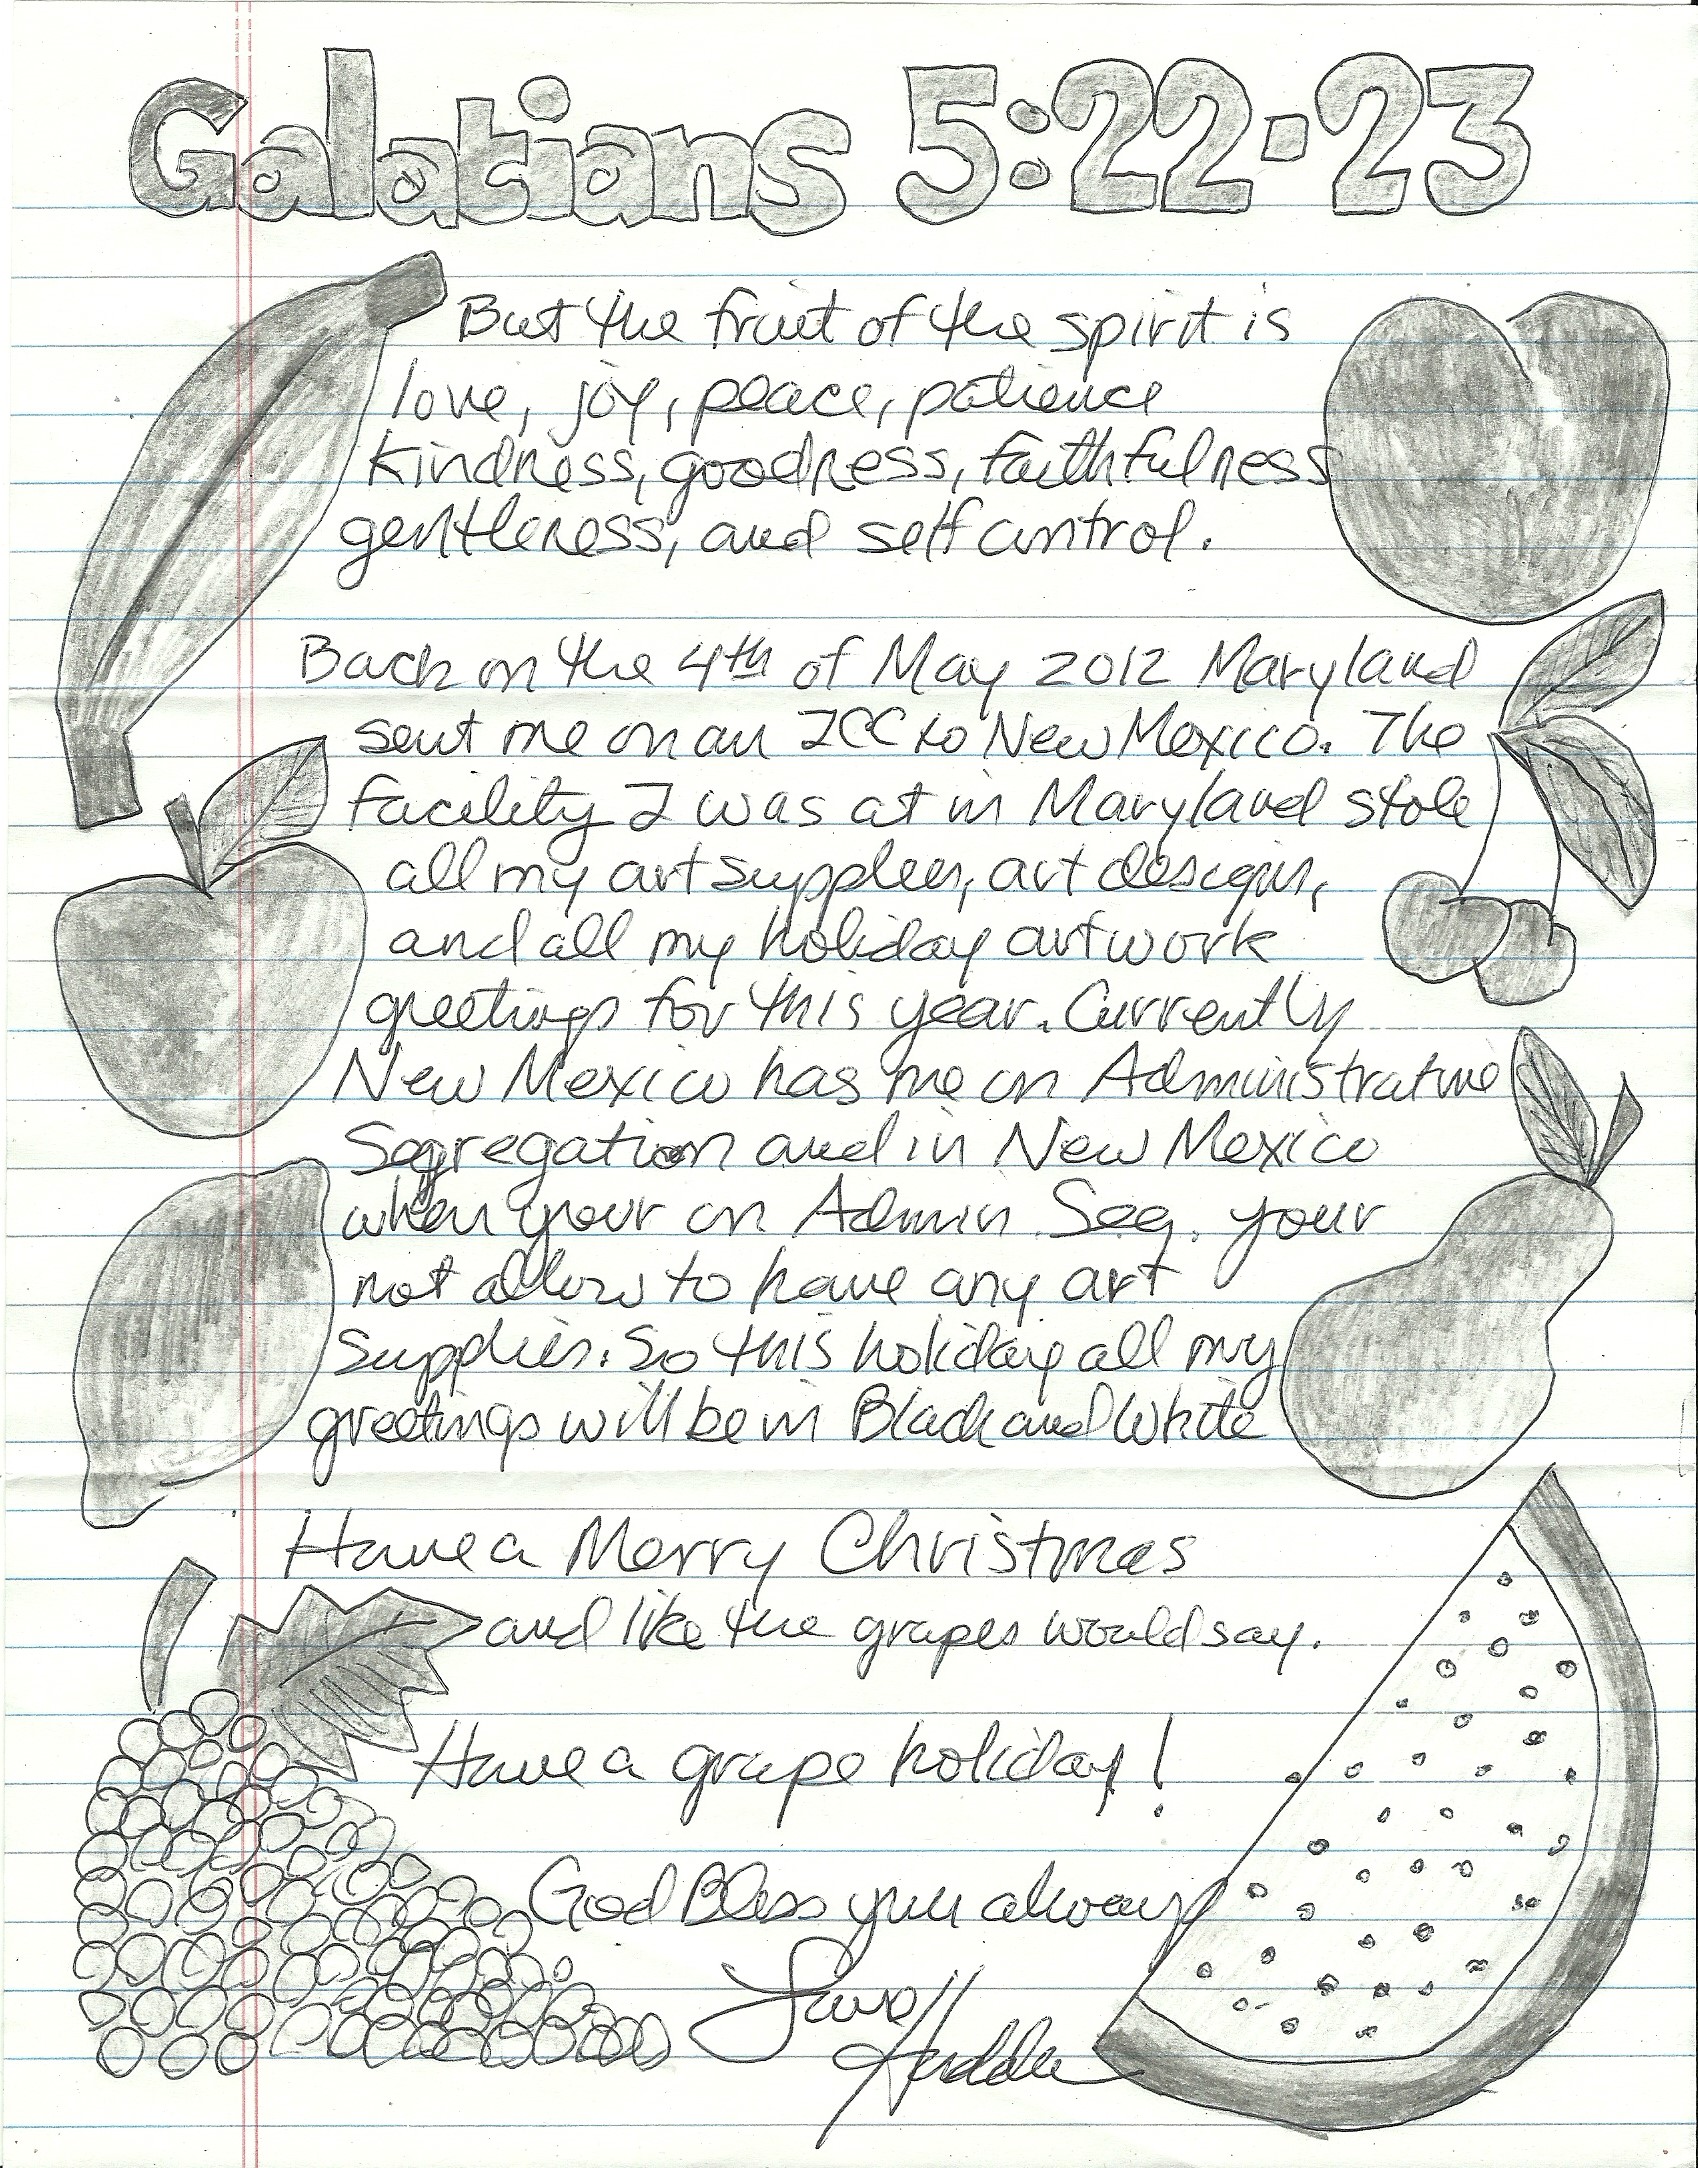 Galatians 5:22-23
But the fruit of the spirit is
love, joy, peace, patience
kindness, goodness, faithfulness
gentleness, and self control.
Back on the 4th of May 2012 Maryland
sent me on an ICC to New Mexico. The
facility I was at in Maryland stole
all my art supplies, art designs,
and all my holiday artwork
greetings for this year. Currently
New Mexico has me on Administrative
Segregation and in New Mexico
when your on Admin Seg. your
not allow to have any art
supplies. So this holiday all my
greetings will be in Black and White
Have a Merry Christmas
and like the grapes would say.
Have a grape holiday!
God Bless you always